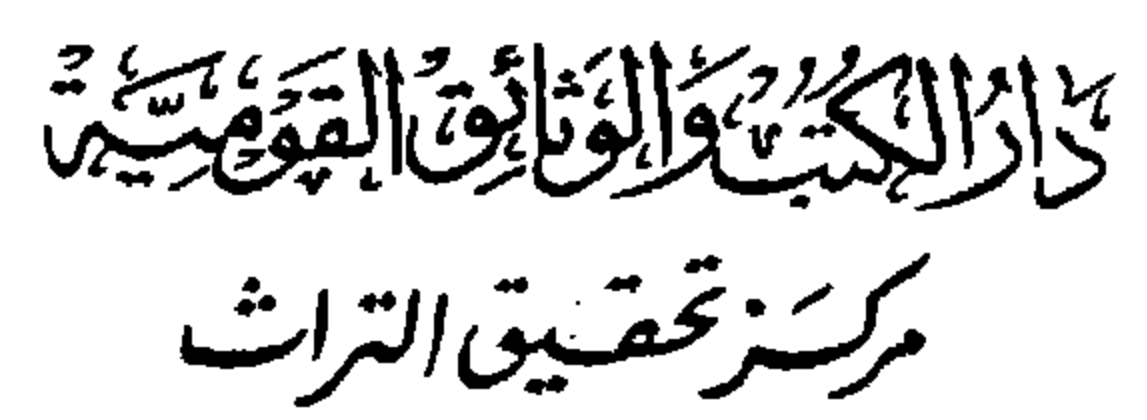 دَارُ الكُتُبُ وَالوَثَائِقُ القَوَمِيَّة
مركَز تحقيق التراث